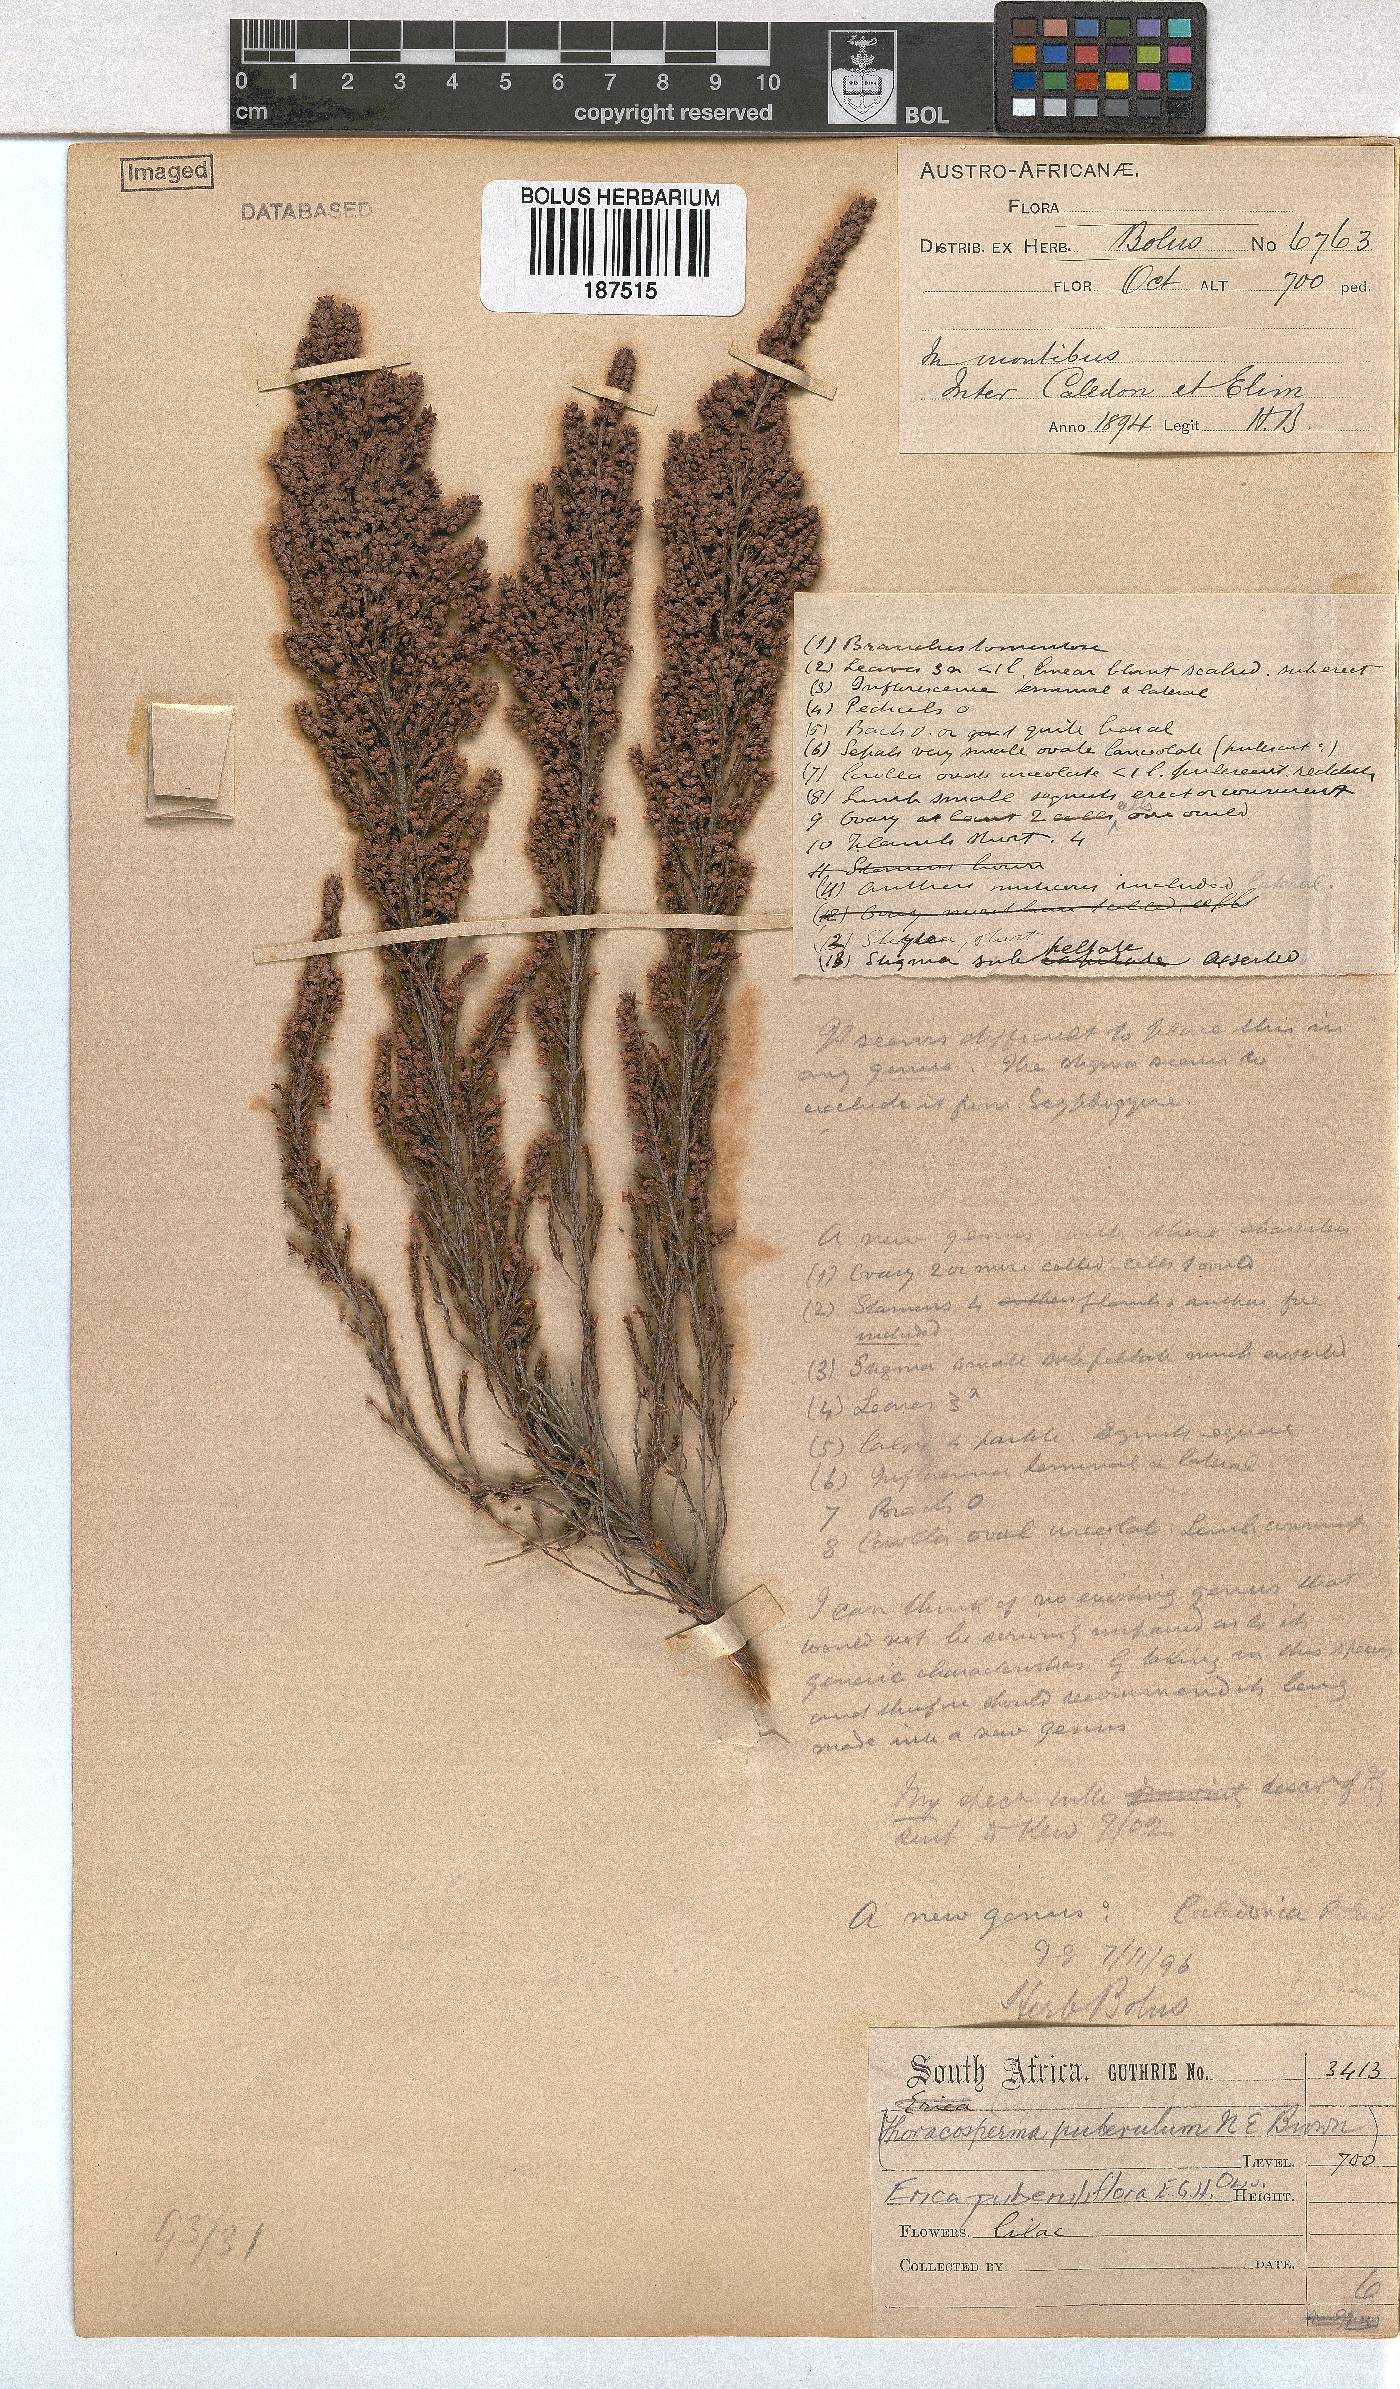 0 1 2 3 4 5 6 7 8 9 10
cm copyright reserved BOL
Imaged
DATABASED
BOLUS HERBARIUM
187515
AUSTRO-AFRICANÆ.
FLORA
DISTRIB. EX HERB. Bolus No 6763
FLOR. Oct ALT 700 ped.
In montibus
Inter Caledon et Elim
Anno 1894 Legit H.B.
(1) Branches tomentose
(2) Leaves 3n <1 l. linear blunt suberect
(3) Inflorescence terminal & lateral
(4) Pedicels 0
(5) Bracts 0 or quite basal
(6) Sepals very small ovate lanceolate (pubescent?)
(7) Corolla ovate urceolate <1 l. pubescent reddish
(8) Limb small segments erect or connivent
9 Ovary at least 2 one ovuled
10 Filaments short. 4
11 Stamens
(11) Anthers muticous included
(12) Ovary
(12) short
(13) Stigma sub capitate peltate exserted
It seems difficult to place this in
any genus. The stigma seems to
exclude it from Scyphogyne.
A new genus with these characters
(1) Ovary 2 or more celled cells 1 ovuled
(2) Stamens 4 filaments & anthers free
included
(3) Stigma small sub peltate much exserted
(4) Leaves 3n
(5) Calyx 4 partite. Segments equal
(6) Inflorescence terminal & lateral
7 Bracts 0
8 Corolla oval urceolate Limb connivent
I can think of no existing genus that
would not be seriously impaired as to its
generic characteristics by taking in this species
and therefore should recommend its being
made into a new genus
My specn with descrn
sent to Kew 9/02
A new genus:
7/11/96
Herb Bolus
South Africa. GUTHRIE No. 3413
Erica
(Thoracosperma puberulum N E Brown)
LEVEL. 700
Erica puberuliflora E.G.H. Oliv.
HEIGHT.
FLOWERS. Lilac
COLLECTED BY DATE.
6
93/31